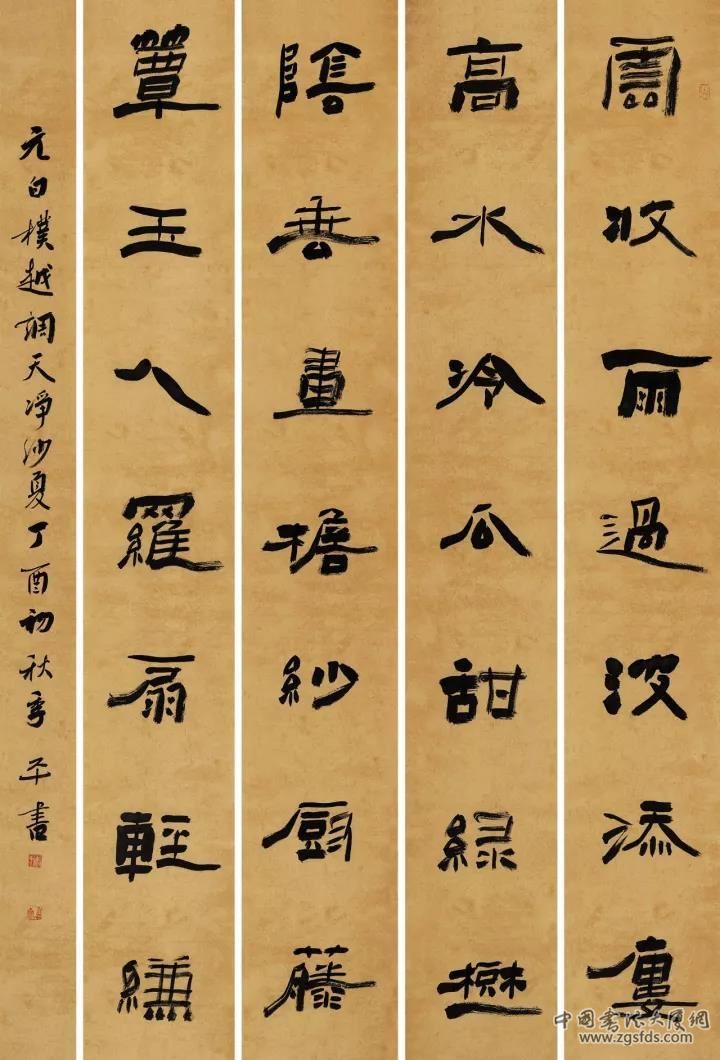 雲收雨過波添廔
高水冷瓜甜緑樹
陰垂畫檐紗厨藤
簟玉人羅扇輕縑
元白樸越調天凈沙夏丁酉初秋季平書
中國書法大厦網
www.zgsfds.com